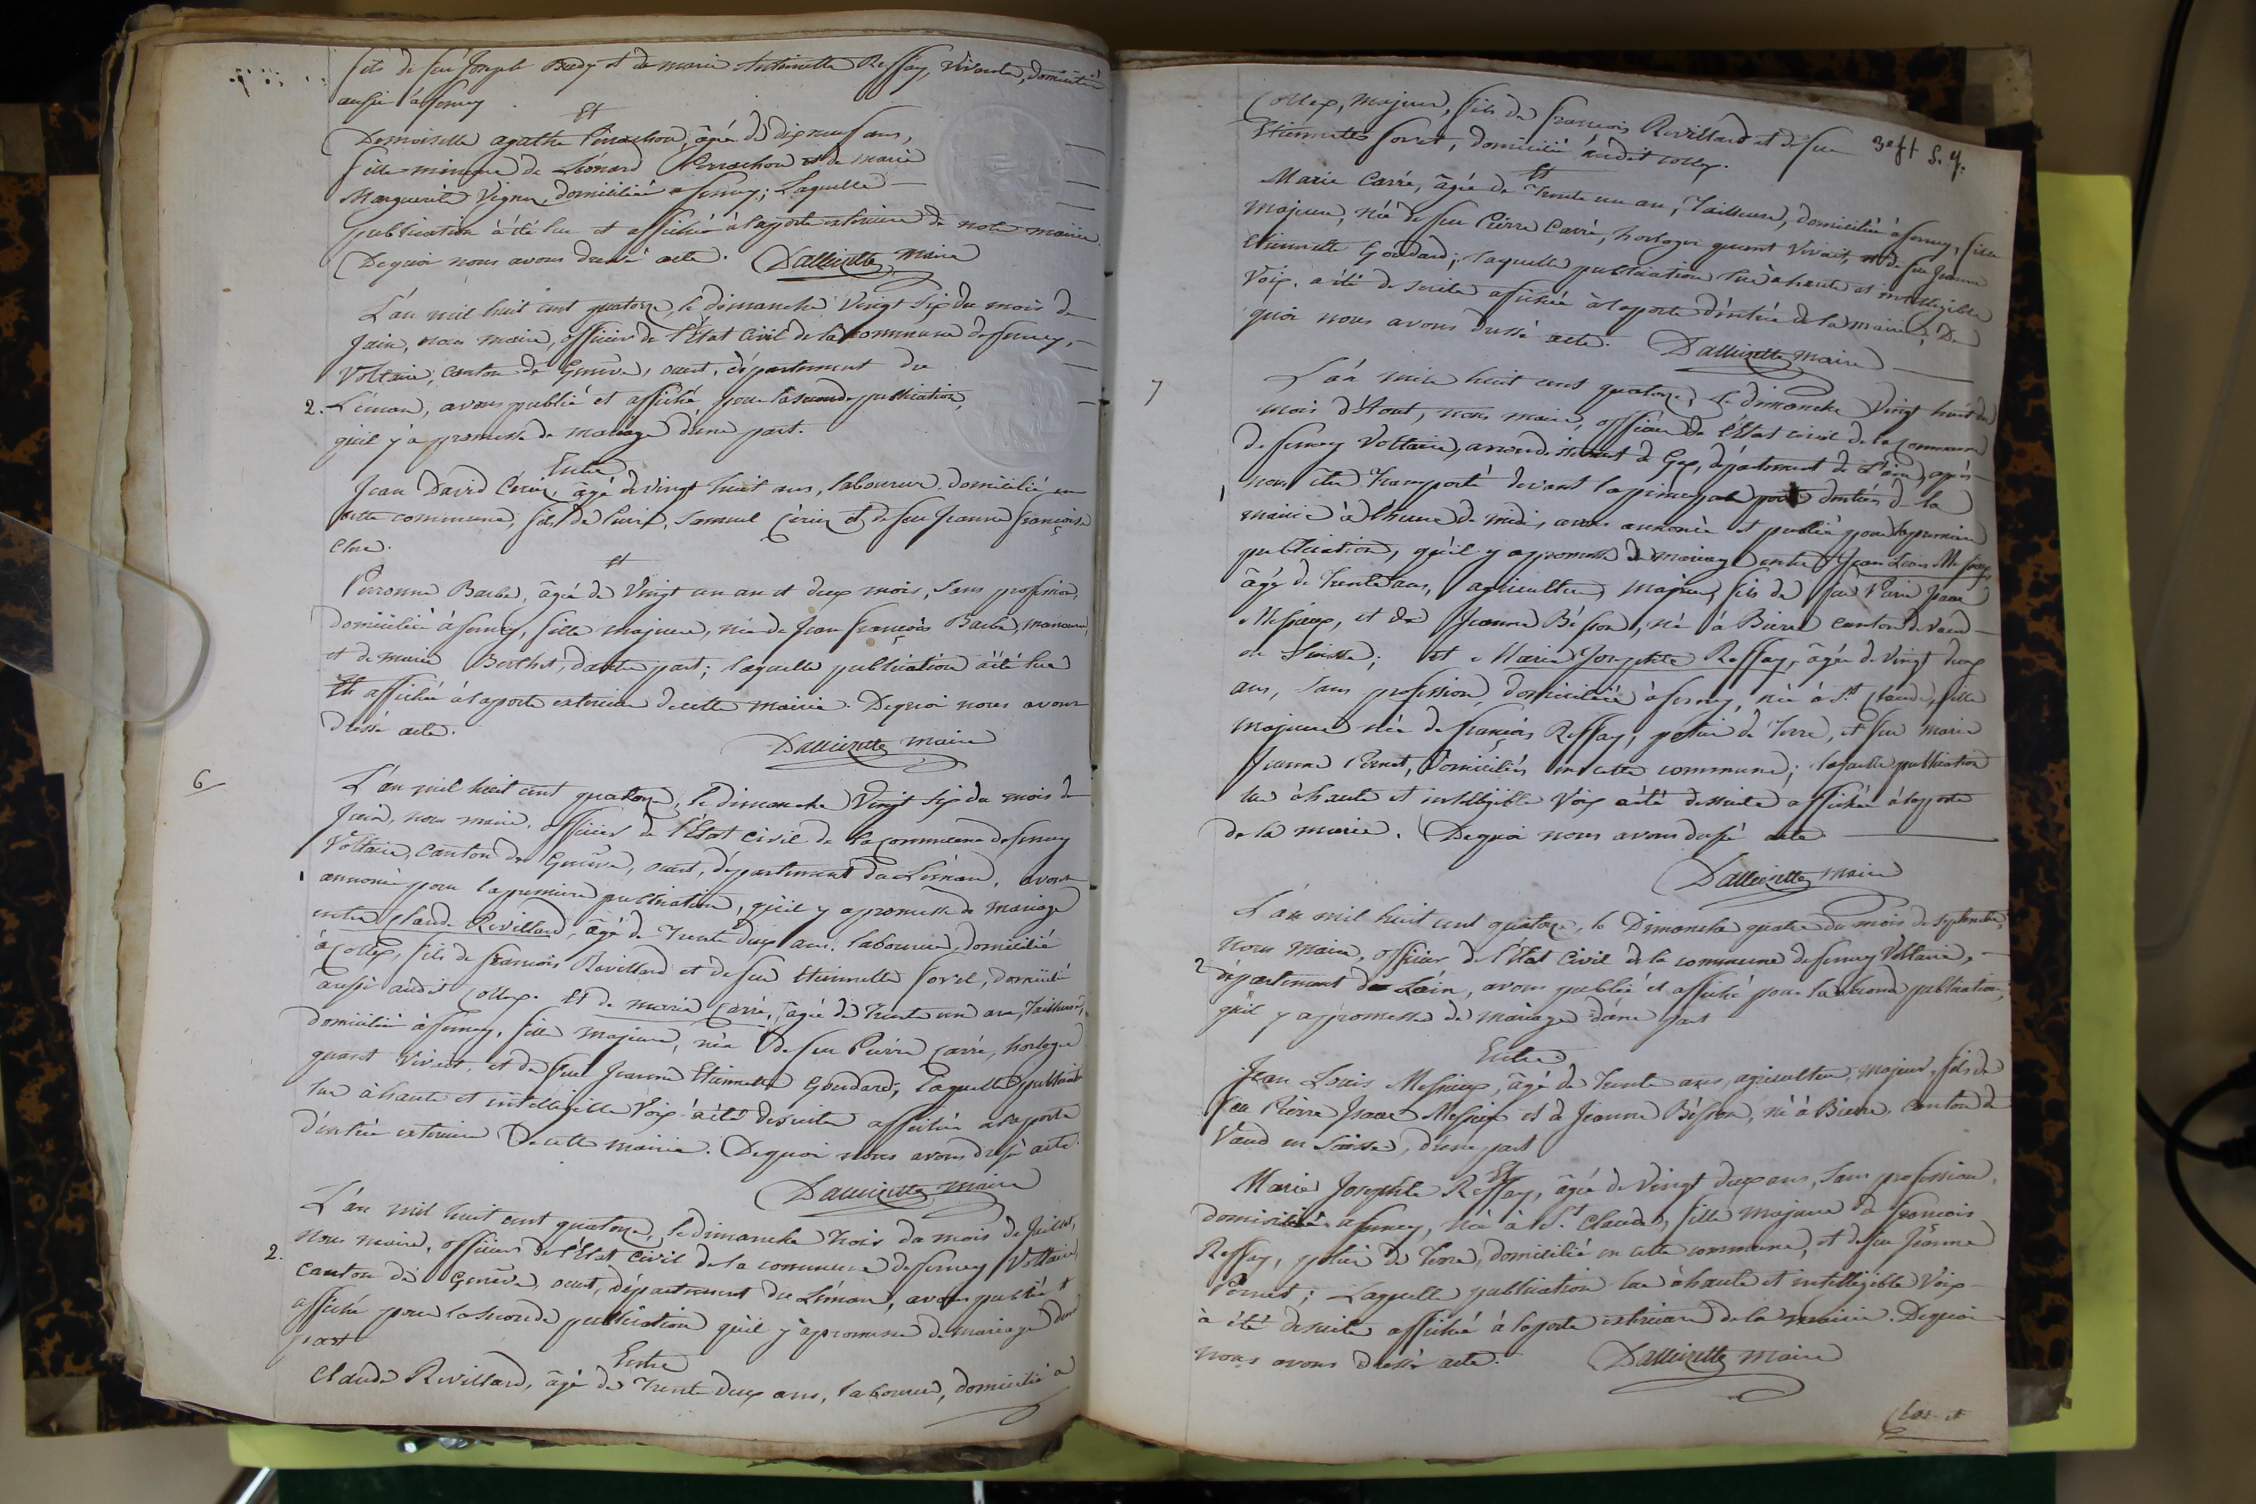 fils de feu Joseph Body et de marie Antoinette Reffay, vivante, domiciliée
aussi à ferney
Et
Demoiselle agathe Perrachon, âgée de dix neuf ans,
fille mineure de Léonard Perrachon et de marie
Marguerite Vignes, domiciliée à ferney; Laquelle
publication a été lue et affichée à la porte extérieure de notre mairie.
De quoi nous avons dressé acte. Dallizette maire
L'an mil huit cent quatorze, le dimanche Vingt Six du mois de
Juin, nous maire, officier de l'État Civil de la commune de ferney,
Voltaire, canton de Genève, ouest, département du
2. Léman, avons publié et affiché pour la seconde publication,
qu'il y a promesse de mariage d'une part.
Entre
Jean David Cerie, âgé de vingt huit ans, laboureur domicilié en
cette commune, fils de Samuel Cerie et de feu Jeanne Françoise
Et
Peronne Barbe, âgée de Vingt un an et deux mois, Sans profession,
domiciliée à ferney, fille majeure, née de Jean françois Barbe, manœuvre,
et de marie Berthet, d'autre part; laquelle publication a été lue
et affichée à la porte extérieure de cette mairie. De quoi nous avons
dressé acte.
Dallizette maire
6
L'an mil huit cent quatorze, le dimanche Vingt Six du mois de
Juin, nous maire, officier de l'État civil de la commune de ferney
Voltaire, canton de Genève, ouest, département du Léman, avons
1 annoncé pour la première publication, qu'il y a promesse de mariage
entre Claude Revillard, âgé de Trente deux ans, laboureur, domicilié
à Collex, fils de françois Revillard et de feu Etiennette Sorel, domicilié
aussi audit Collex. Et de marie Carré, âgée de Trente un ans, Tailleuse,
domiciliée à ferney, fille majeure, née de feu Pierre Carré, horloger
quant Vivait, et de feu Jeanne Etiennette Goudard; laquelle publication
lue à haute et intelligible Voix a été de suite affichée à la porte
d'entrée extérieure De cette mairie. De quoi nous avons dressé acte.
Dallizette maire
L'an mil huit cent quatorze, le dimanche trois du mois de Juillet,
nous maire, officier de l'État Civil de la commune de ferney Voltaire
2. canton de Genève, ouest, département du Léman, avons publié et
affiché pour la seconde publication qu'il y a promesse de mariage d'une
part
Entre
Claude Revillard, âgé de Trente Deux ans, laboureur, domicilié à
3e ft S. J.
Collex, majeur, fils de françois Revillard et de feu
Etiennette Sorel, domicilié audit Collex.
Et
Marie Carré, âgée de Trente un an, Tailleuse, domiciliée à ferney, fille
majeure, née de feu Pierre Carré, horloger quant Vivait, et de feu Jeanne
Etiennette Goudard; laquelle publication lue à haute et intelligible
Voix, a été de suite affichée à la porte d'entrée de la mairie; De
quoi nous avons dressé acte. Dallizette maire
7
L'an mil huit cent quatorze, le dimanche Vingt huit du
mois d'Août, nous maire, officier de l'État civil de la commune
de ferney Voltaire, arrondissement de Gex, département de l'ain, après
1 nous être Transporté devant la principale porte d'entrée de la
mairie à l'heure de midi, avons annoncé et publié pour la première
publication, qu'il y a promesse de mariage entre Jean Louis Messieux
âgé de Trente ans, agriculteur, majeur, fils de feu Pierre Isaac
Messieux, et de Jeanne Bésson, né à Biere canton de Vaud
en Suisse; et Marie Josephte Reffay, âgée de Vingt deux
ans, sans profession, domiciliée à ferney, née à St Claude, fille
majeure née de françois Reffay, potier de Terre, et feu marie
Jeanne Pernet, Domiciliés en cette commune; laquelle publication
lue à haute et intelligible Voix a été de suite affichée à la porte
de la mairie. De quoi nous avons dressé acte
Dallizette maire
L'an mil huit cent quatorze, le Dimanche quatre du mois de septembre,
nous Maire, officier de l'État Civil de la commune de ferney Voltaire,
2 département de Lain, avons publié et affiché pour la seconde publication,
qu'il y a promesse de mariage d'une part
Entre
Jean Louis Messieux, âgé de Trente ans, agriculteur, majeur, fils de
feu Pierre Isaac Messieux et de Jeanne Bésson, né à Bierre, canton de
Vaud en Suisse, d'une part
Et
Marie Josephte Reffay, âgée de Vingt deux ans, sans profession,
domiciliée à ferney, née à St Claude, fille majeure de françois
Reffay, potier de Terre, domicilié en cette commune, et de feu Jeanne
Pernet; Laquelle publication lue à haute et intelligible Voix
à été de suite affichée à la porte extérieure de la mairie. De quoi
nous avons dressé acte. Dallizette maire
Clos et